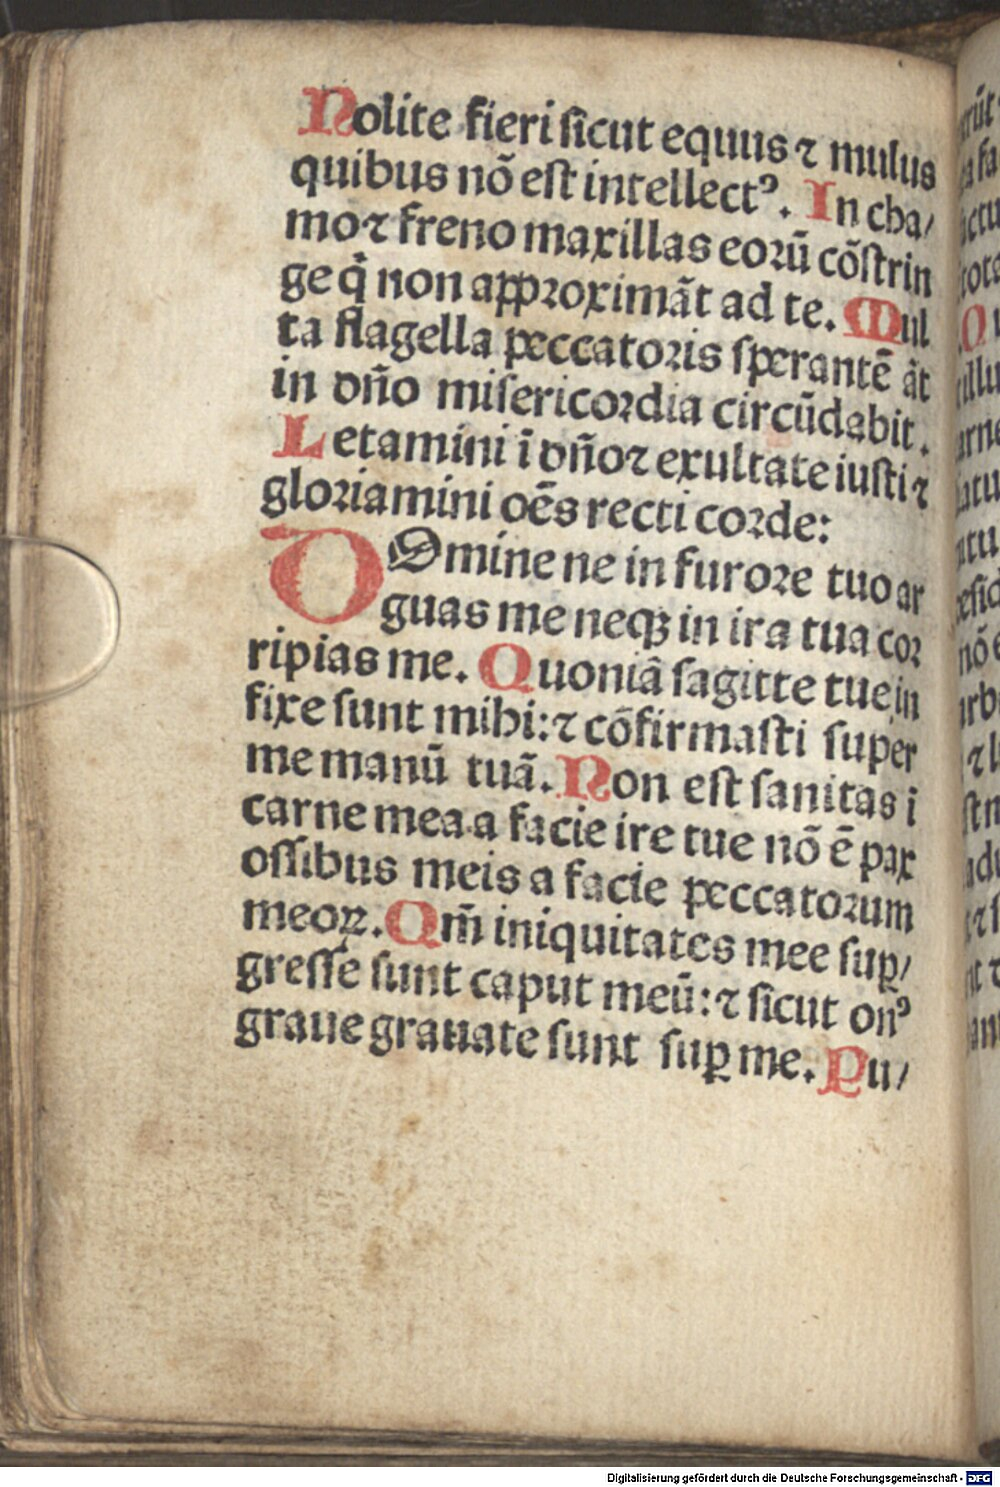 Nolite fieri sicut equus ⁊ mulus
quibus nō est intellectꝰ. In cha/
mo ⁊ freno maxillas eoꝛū cōstrin
ge q̇ non appꝛoximāt ad te. Mul
ta flagella peccatoꝛis sperantē āt
in dño misericoꝛdia circūdabit.
Letamini ī dño ⁊ exultate iusti ⁊
gloꝛiamini oēs recti coꝛde:
DOmine ne in furoꝛe tuo ar
guas me neqꝫ in ira tua coꝛ
ripias me. Quoniā sagitte tue in
fixe sunt mihi: ⁊ cōfirmasti super
me manū tuā. Non est sanitas i
carne mea a facie ire tue nō ē pax
ossibus meis a facie peccatoꝛum
meoꝝ. Qm̄ iniquitates mee suꝑ/
gresse sunt caput meū: ⁊ sicut onꝰ
graue grauate sunt suꝑ me. Pu/
Digitalisierung gefördert durch die Deutsche Forschungsgemeinschaft - DFG